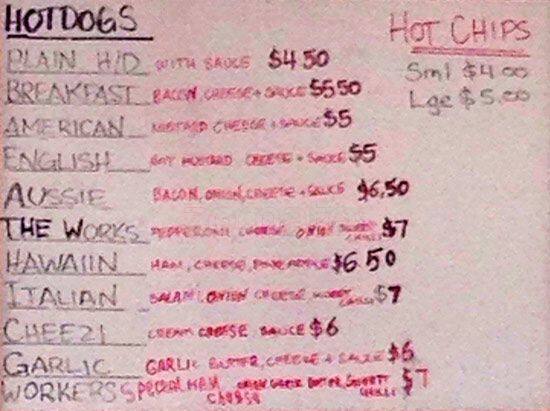 HOTDOGS
PLAIN H/D WITH SAUCE $4.50
BREAKFAST BACON, CHEESE + SAUCE $5.50
AMERICAN MUSTARD CHEESE + SAUCE $5
ENGLISH HOT MUSTARD CHEESE + SAUCE $5
AUSSIE BACON, ONION, CHEESE + SAUCE $6.50
THE WORKS PEPPERONI, CHEESE, ONION SWEET CHILLI $7
HAWAIIN HAM, CHEESE, PINEAPPLE $6.50
ITALIAN SALAMI, ONION CHEESE, SWEET CHILLI $7
CHEEZI CREAM CHEESE SAUCE $6
GARLIC GARLIC BUTTER, CHEESE + SAUCE $6
WORKERS SPECIAL HAM, ONION GARLIC BUTTER, SWEET CHILLI CHEESE $7
HOT CHIPS
Sml $4.00
Lge $5.00